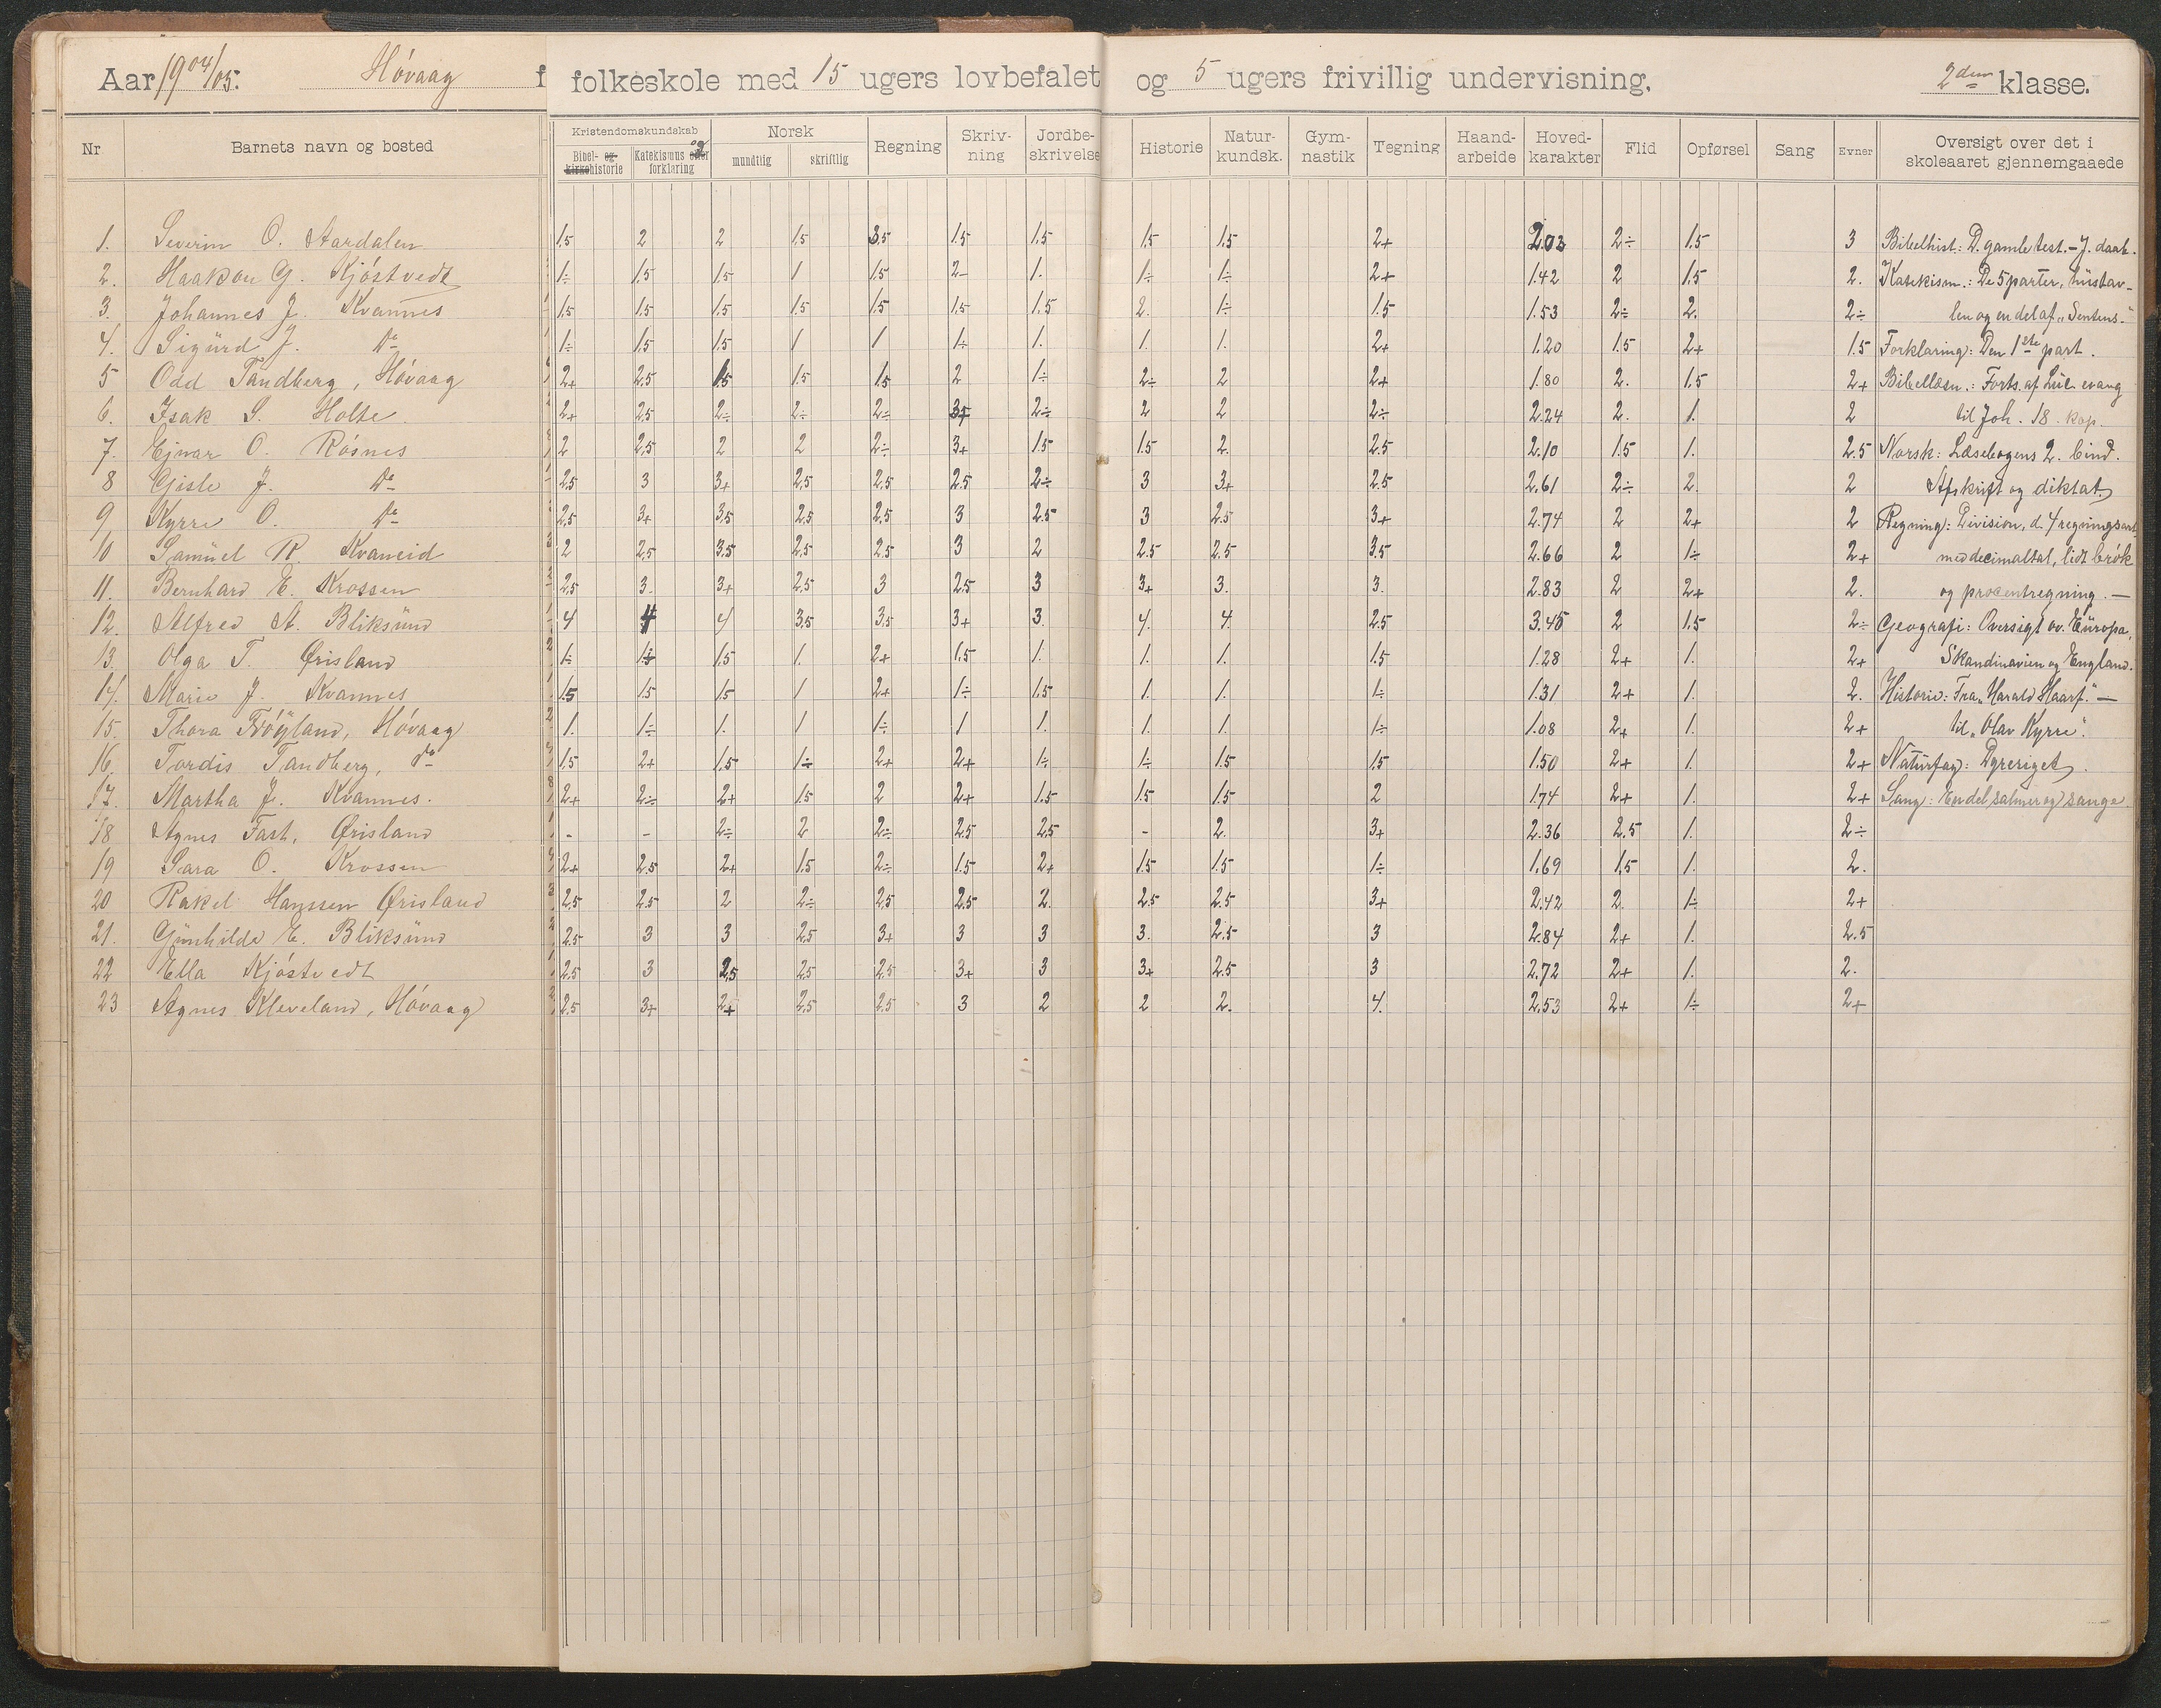 Aar 1904/05. Hóvaag folkeskole med 15 ugers lovbefalet og 5 ugers frivillig undervisning. 2den klasse.
Nr Barnets navn og bosted Kristendomskundskab Bibel- og kirkehistorie Katekismus eller og forklaring Norsk mundtlig skriftlig Regning Skriv-ning Jordbe-skrivelse Historie Natur-kundsk. Gym-nastik Tegning Haand-arbeide Hoved-karakter Flid Opførsel Sang Evner Oversigt over det i skoleaaret gjennemgaaede
1. Severin O. Aardalen 1.5 2 2 1.5 3.5 1.5 1.5 1.5 1.5 2+ 2.03 2÷ 1.5 3 Bibelhist.: D. gamle test. – J. daab.
2. Haakon G. Kjóstvedt 1÷ 1.5 1.5 1 1.5 2- 1. 1÷ 1÷ 2+ 1.42 2 1.5 2. Katekism.: De 5 parter, hustav-
3. Johannes J. Kvannes 1.5 1.5 1.5 1.5 1.5 1.5 1.5 2. 1÷ 1.5 1.53 2÷ 2. 2÷ len og en del af „Sentens.“
4. Sigurd J. do 1÷ 1.5 1.5 1 1 1÷ 1. 1. 1. 2+ 1.20 1.5 2+ 1.5 Forklaring: Den 1ste part.
5 Odd Tandberg, Hóvaag 2+ 2.5 1.5 1.5 1.5 2 1÷ 2÷ 2 2+ 1.80 2. 1.5 2+ Bibellæsn.: Forts. af Luc evang
6. Isak S. Holte. 2+ 2.5 2÷ 2÷ 2÷ 3+ 2÷ 2 2 2÷ 2.24 2. 1. 2 til Joh. 18. kap.
7. Ejnar O. Rósnes 2 2.5 2 2 2÷ 3+ 1.5 1.5 2. 2.5 2.10 1.5 1. 2.5 Norsk: Læsebogens 2. bind.
8 Gisle J. do 2.5 3 3+ 2.5 2.5 2.5 2÷ 3 3+ 2.5 2.61 2÷ 2. 2 Afskrift og diktat.
9 Kyrre O. do 2.5 3+ 3.5 2.5 2.5 3 2.5 3 2.5 3+ 2.74 2 2+ 2 Regning: Division, d. 4 regningsart.
10 Samuel R. Kvaneid 2 2.5 3.5 2.5 2.5 3 2 2.5 2.5 3.5 2.66 2 1÷ 2+ med decimaltal, lidt brók
11. Bernhard E. Krossen 2.5 3. 3+ 2.5 3 2.5 3 3+ 3. 3. 2.83 2 2+ 2. og procentregning. —
12. Alfred A. Bliksund 4 4 4 3.5 3.5 3+ 3 4. 4. 2.5 3.45 2 1.5 2÷ Geografi: Oversigt ov. Europa,
13. Olga T. Ørisland 1÷ 1÷ 1.5 1. 2+ 1.5 1. 1. 1. 1.5 1.28 2+ 1. 2+ Skandinavien og England.
14. Marie J. Kvannes 1.5 1.5 1.5 1 2+ 1÷ 1.5 1. 1. 1÷ 1.31 2+ 1. 2. Historie: Fra „Harald Haarf.“ —
15. Thora Tróyland, Hóvaag 1. 1÷ 1. 1 1÷ 1 1. 1. 1. 1÷ 1.08 2+ 1. 2+ til „Olav Kyrre“.
16. Tordis Tandberg, do 1.5 2+ 1.5 1÷ 2+ 2+ 1÷ 1÷ 1.5 1.5 1.50 2+ 1. 2+ Naturfag: Dyreriget.
17. Martha J. Kvannes. 2+ 2÷ 2+ 1.5 2 2+ 1.5 1.5 1.5 2 1.74 2+ 1. 2+ Sang: En del salmer og sange
18 Agnes Fast, Ørisland - - 2÷ 2 2÷ 2.5 2.5 - 2. 3+ 2.36 2.5 1. 2÷
19 Sara O. Krossen 2+ 2.5 2+ 1.5 2÷ 1.5 2+ 1.5 1.5 1÷ 1.69 1.5 1. 2.
20 Rakel Hanssen Ørisland 2.5 2.5 2 2÷ 2.5 2.5 2. 2.5 2.5 3+ 2.42 2. 1÷ 2+
21. Gunhilde E. Bliksund 2.5 3 3 2.5 3+ 3 3 3. 2.5 3 2.84 2+ 1. 2.5
22 Ella Kjóstvedt 2.5 3 2.5 2.5 2.5 3+ 3 3+ 2.5 3 2.72 2+ 1. 2.
23 Agnes Kleveland, Hóvaag 2.5 3+ 2+ 2.5 2.5 3 2 2 2. 4. 2.53 2+ 1÷ 2+